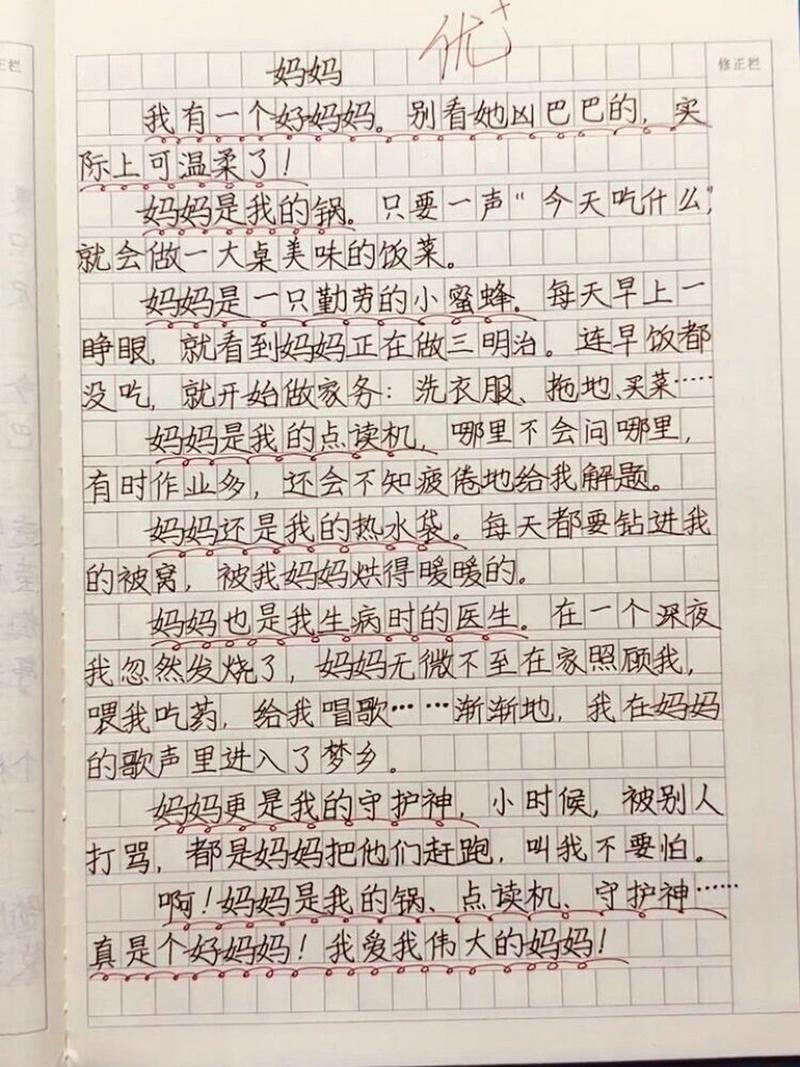 优+
修正栏
正栏
妈妈
我有一个好妈妈。别看她凶巴巴的，实
际上可温柔了！
妈妈是我的锅。只要一声“今天吃什么”，
就会做一大桌美味的饭菜。
妈妈是一只勤劳的小蜜蜂。每天早上一
睁眼，就看到妈妈正在做三明治。连早饭都
没吃，就开始做家务：洗衣服、拖地、买菜……
妈妈是我的点读机，哪里不会问哪里，
有时作业多，还会不知疲倦地给我解题。
妈妈还是我的热水袋。每天都要钻进我
的被窝，被我妈妈烘得暖暖的。
妈妈也是我生病时的医生。在一个深夜
我忽然发烧了，妈妈无微不至在家照顾我，
喂我吃药，给我唱歌……渐渐地，我在妈妈
的歌声里进入了梦乡。
妈妈更是我的守护神，小时候，被别人
打骂，都是妈妈把他们赶跑，叫我不要怕。
啊！妈妈是我的锅、点读机、守护神……
真是个好妈妈！我爱我伟大的妈妈！